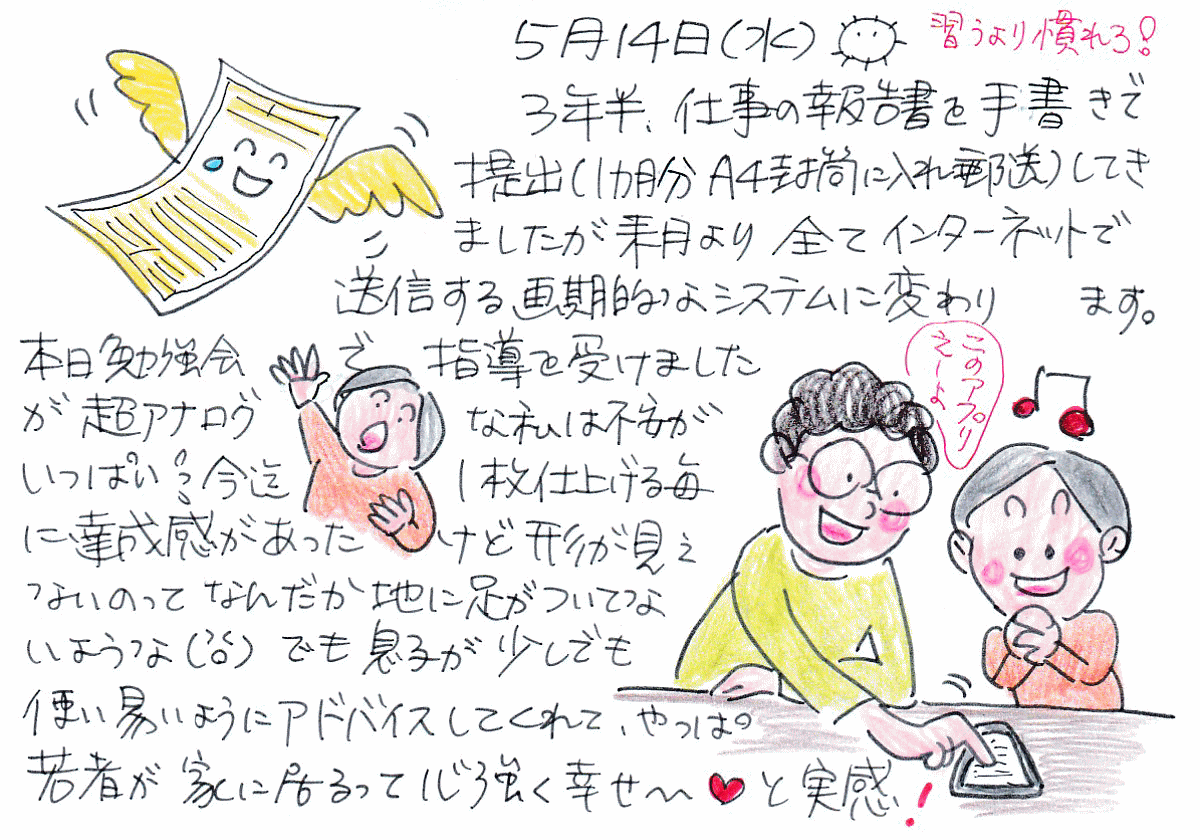 5月14日(水)
習うより慣れろ!
3年半、仕事の報告書を手書きで
提出(1カ月分A4封筒に入れ郵送)してき
ましたが来月より全てインターネットで
送信する画期的なシステムに変わります。
本日勉強会で指導を受けました
が超アナログな私は不安が
いっぱい?今迄1枚仕上げる毎
に達成感があったけど形が見え
ないのってなんだか地に足がついてな
いような(??)でも息子が少しでも
使い易いようにアドバイスしてくれて、やっぱ
若者が家に居るって心強く幸せ〜♥と実感!
このアプリ
えーよ